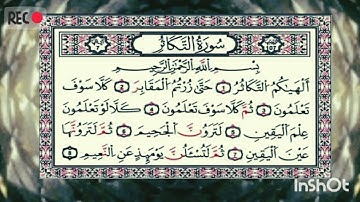 REC
سُورَةُ التَّكَاثُرِ
بِسْمِ اللَّهِ الرَّحْمَٰنِ الرَّحِيمِ
أَلْهَىٰكُمُ التَّكَاثُرُ ١ حَتَّىٰ زُرْتُمُ الْمَقَابِرَ ٢ كَلَّا سَوْفَ
تَعْلَمُونَ ٣ ثُمَّ كَلَّا سَوْفَ تَعْلَمُونَ ٤ كَلَّا لَوْ تَعْلَمُونَ
عِلْمَ الْيَقِينِ ٥ لَتَرَوُنَّ الْجَحِيمَ ٦ ثُمَّ لَتَرَوُنَّهَا
عَيْنَ الْيَقِينِ ٧ ثُمَّ لَتُسْأَلُنَّ يَوْمَئِذٍ عَنِ النَّعِيمِ ٨
InShOt